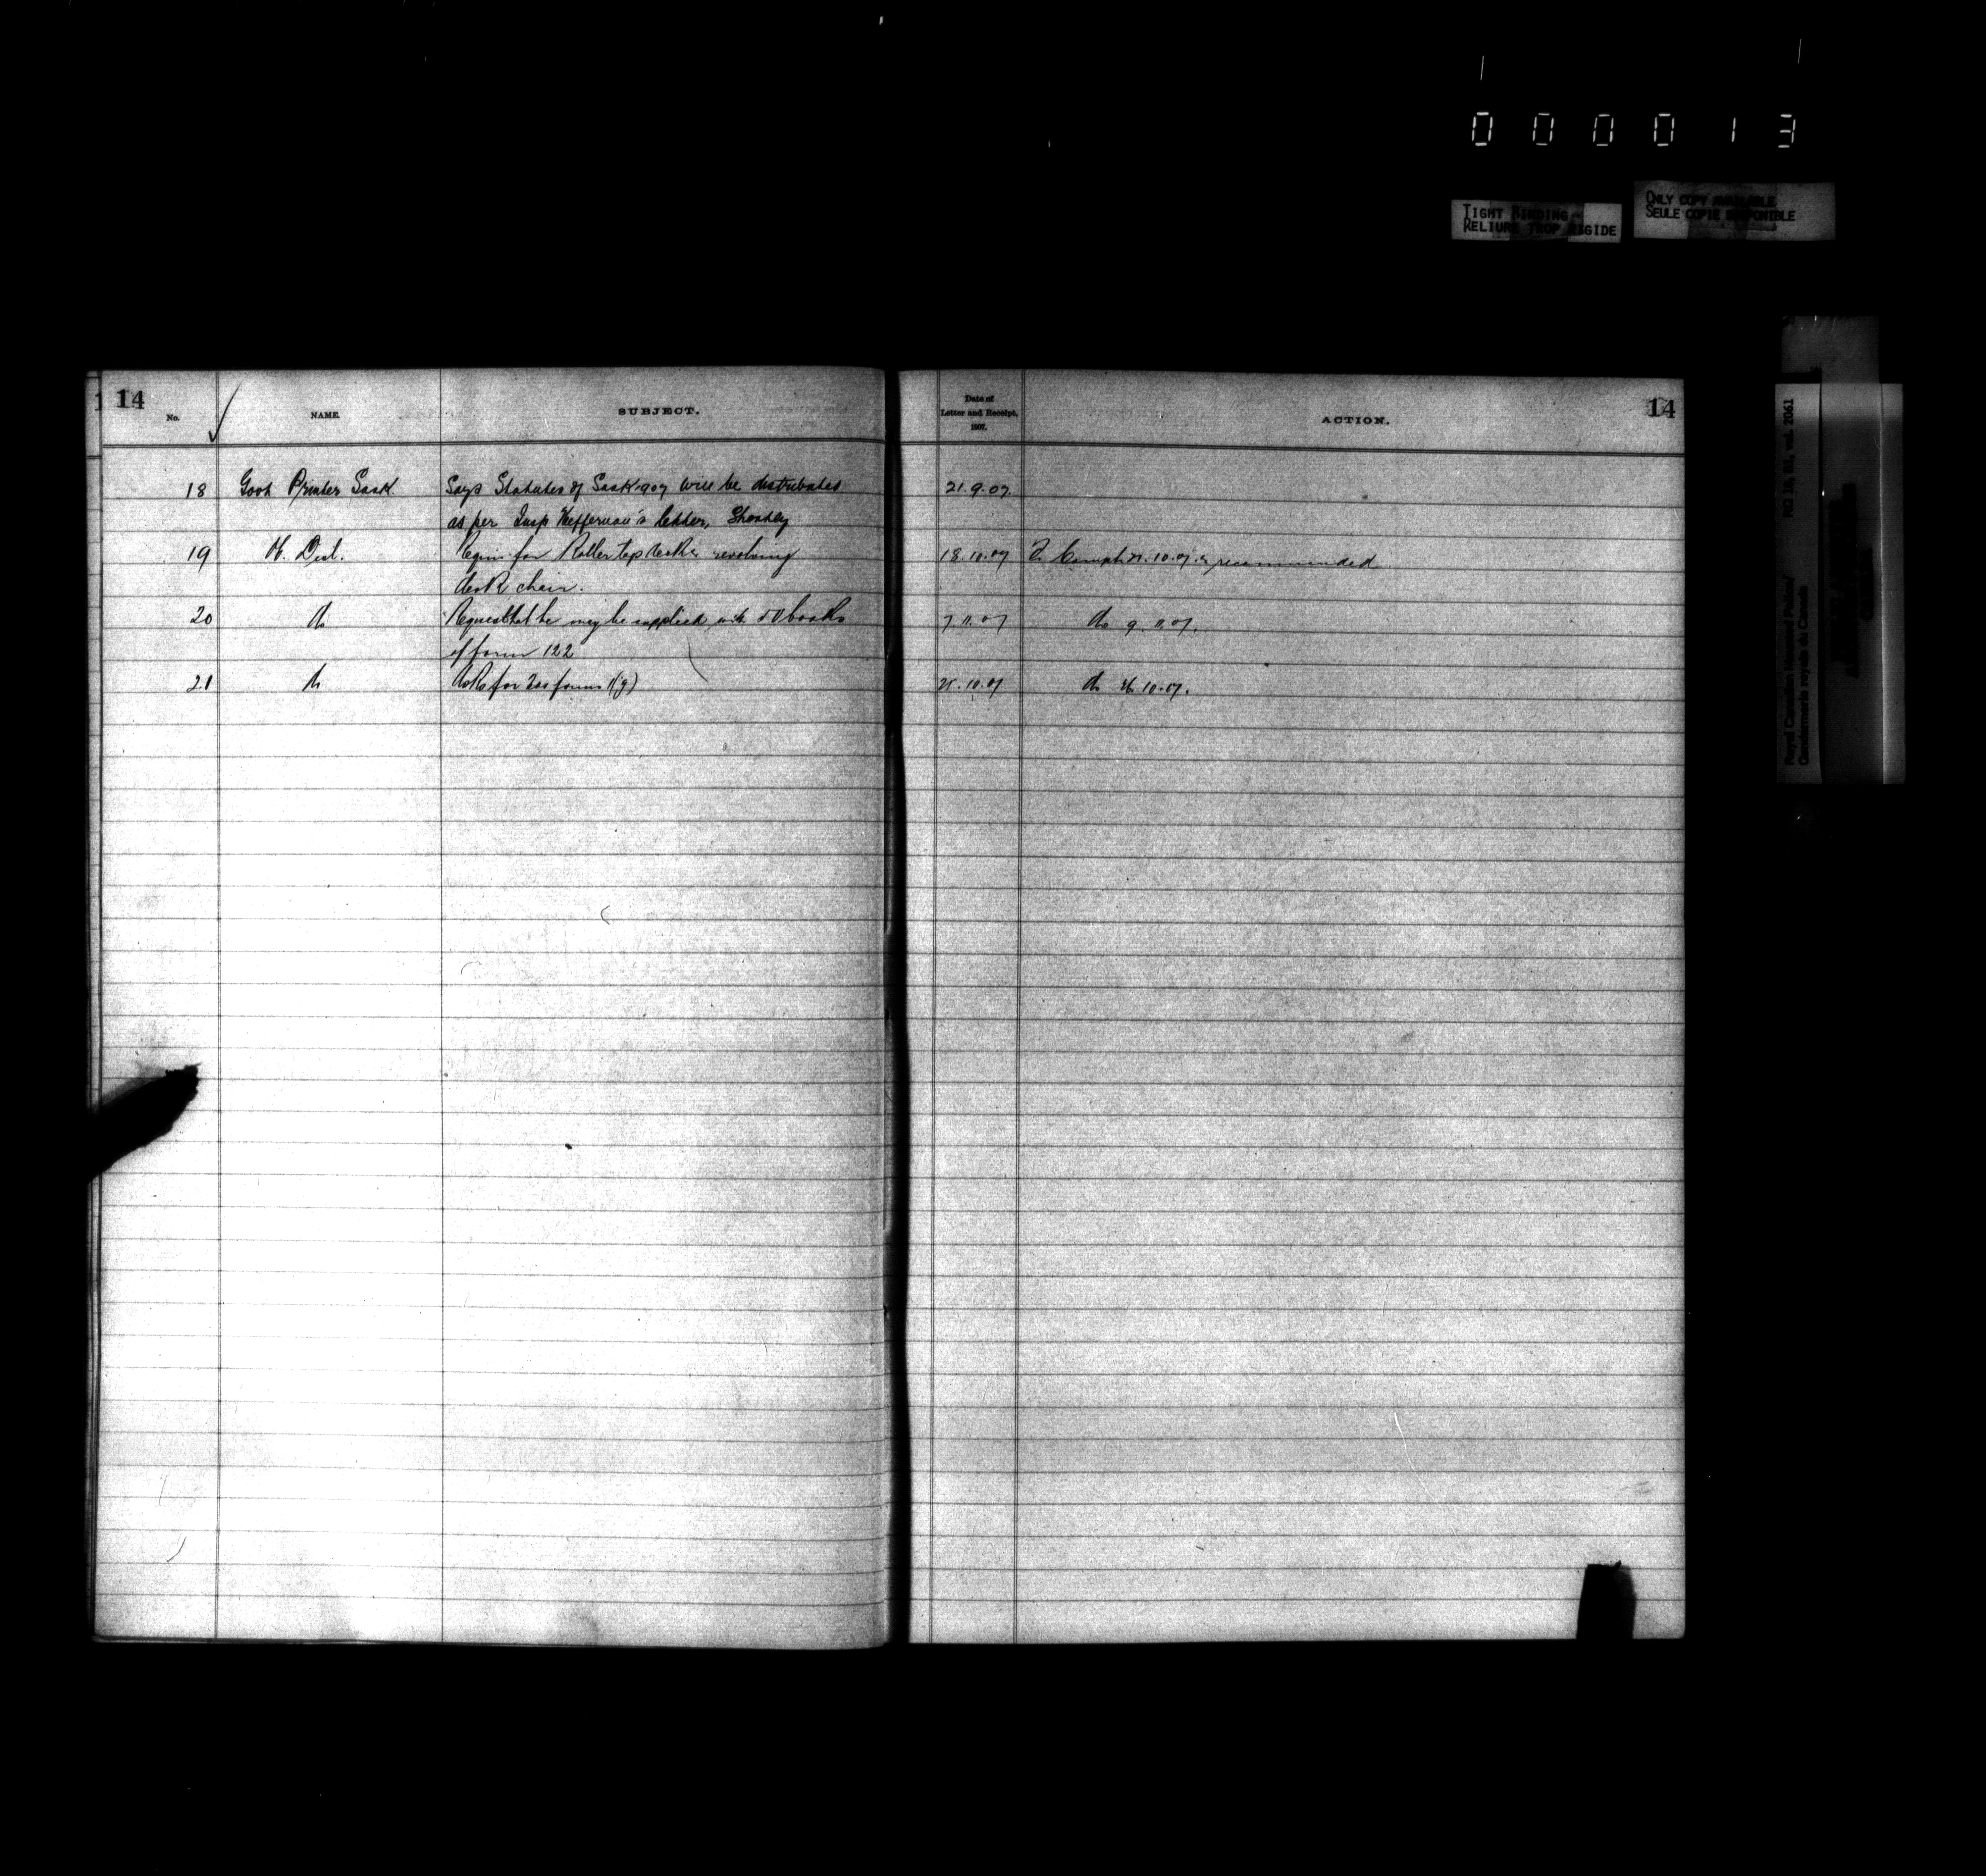 000013
TIGHT BINDING
RELIURE TROP RIGIDE
ONLY COPY AVAILABLE
SEULE COPIE DISPONIBLE
Royal Canadian Mounted Police/
Gendarmerie royale du Canada
RG 18, B1, vol. 2061
14
No.
NAME.
SUBJECT.
Date of
Letter and Receipt,
1907.
ACTION.
14
18 Govt Printer Sask. Says Statutes of Sask 1907 will be distributed 21.9.07
as per Insp Heffernan's letter, Shortly
19 Requi. for Roller top desk & revolving 18.10.07 recommended
desk chair.
20 do Request that he may be supplied with 50 books 7.11.07 do 9.11.07.
of form 122
21 do Asks for 200 forms 11(g) .10.07 do 10.07.